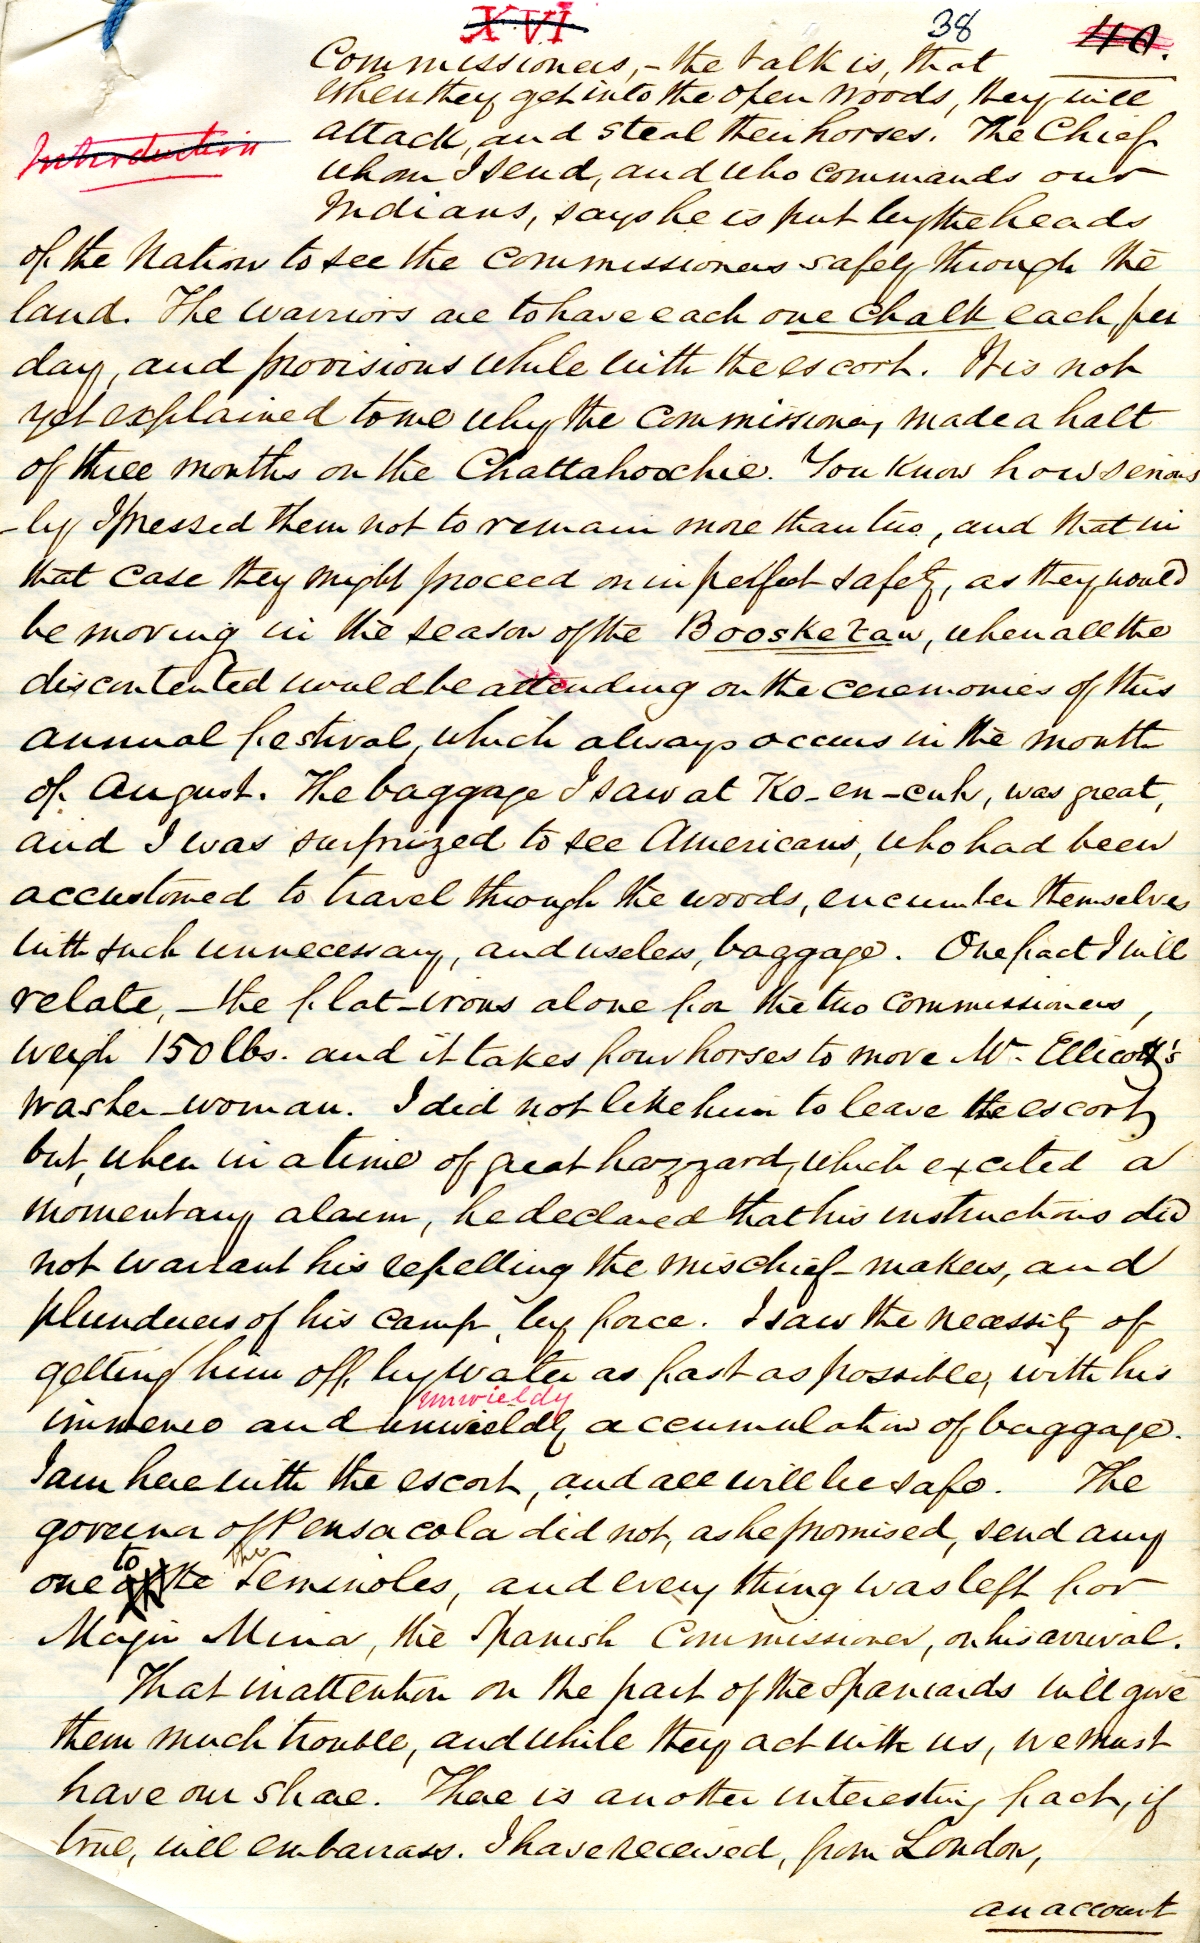 XVI 38 40.
Commissioners, - the talk is, that
when they get into the open woods, they will
Introduction
attack, and steal their horses. The Chief
whom I send, and who commands our
Indians, says he is put by the heads
of the Nation to see the Commissioners safely through the
land. The warriors are to have each one chalk each per
day, and provisions while with the escort. It is not
yet explained to me why the Commissioners, made a halt
of three months on the Chattahoochie. You know how serious
-ly I pressed them not to remain more than two, and that in
that case they might proceed on in perfect safety, as they would
be moving in the season of the Boosketau, when all the
discontented would be attending on the ceremonies of this
annual festival, which always occurs in the month
of August. The baggage I saw at Ko-en-cuh, was great,
and I was surprized to see Americans, who had been
accustomed to travel through the woods, encumber themselves
with such unnecessary, and useless, baggage. One fact I will
relate, - the flat-irons alone for the two Commissioners,
weigh 150 lbs. and it takes four horses to move Mr. Ellicott's
washer-woman. I did not like him to leave the escort,
but, when in a time of great hazzard, which excited a
momentary alarm, he declared that his instructions did
not warrant his repelling the mischief-makers, and
plunderers of his camp, by force. I saw the necessity of
getting him off by water as fast as possible, with his
unwieldy
immense and unwieldly accumulation of baggage.
I am here with the escort, and all will be safe. The
governor of Pensacola did not, as he promised, send any
to the
one of the Seminoles, and every thing was left for
Major Mina, the Spanish Commissioner, on his arrival.
That inattention on the part of the Spaniards will give
them much trouble, and while they act with us, we must
have our share. There is another interesting fact, if
true, will embarrass. I have received, from London,
an account